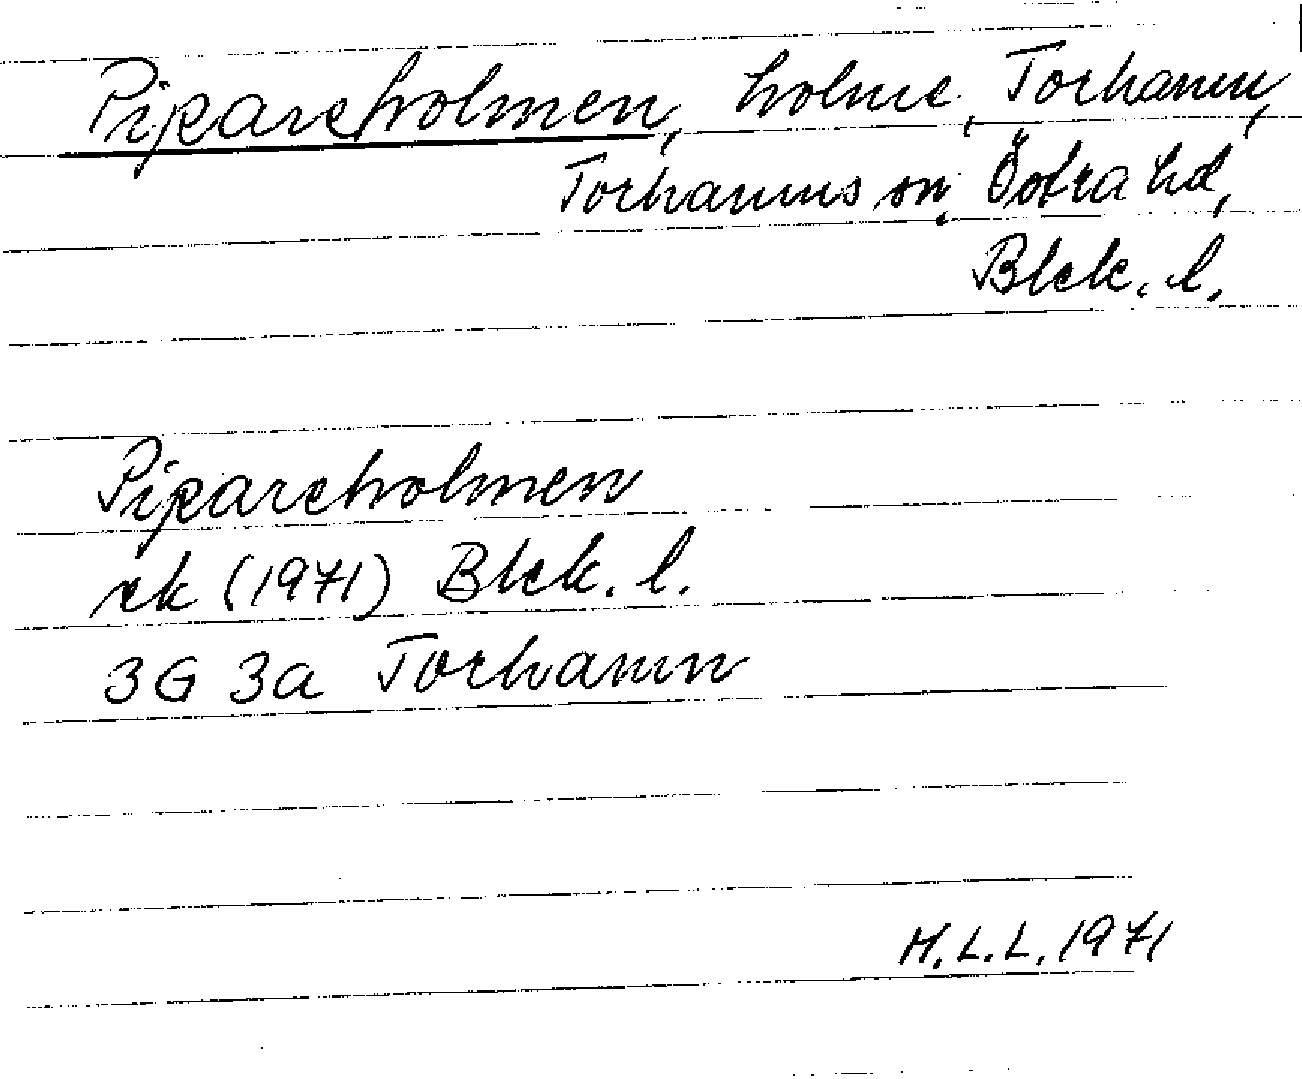 Pipareholmen, holme, Torhamn,
Torhamns sn, Östra hd,
Blek. l.
Pipareholmen
ek (1971) Blek. l.
3G 3a Torhamn
H.L.L. 1971